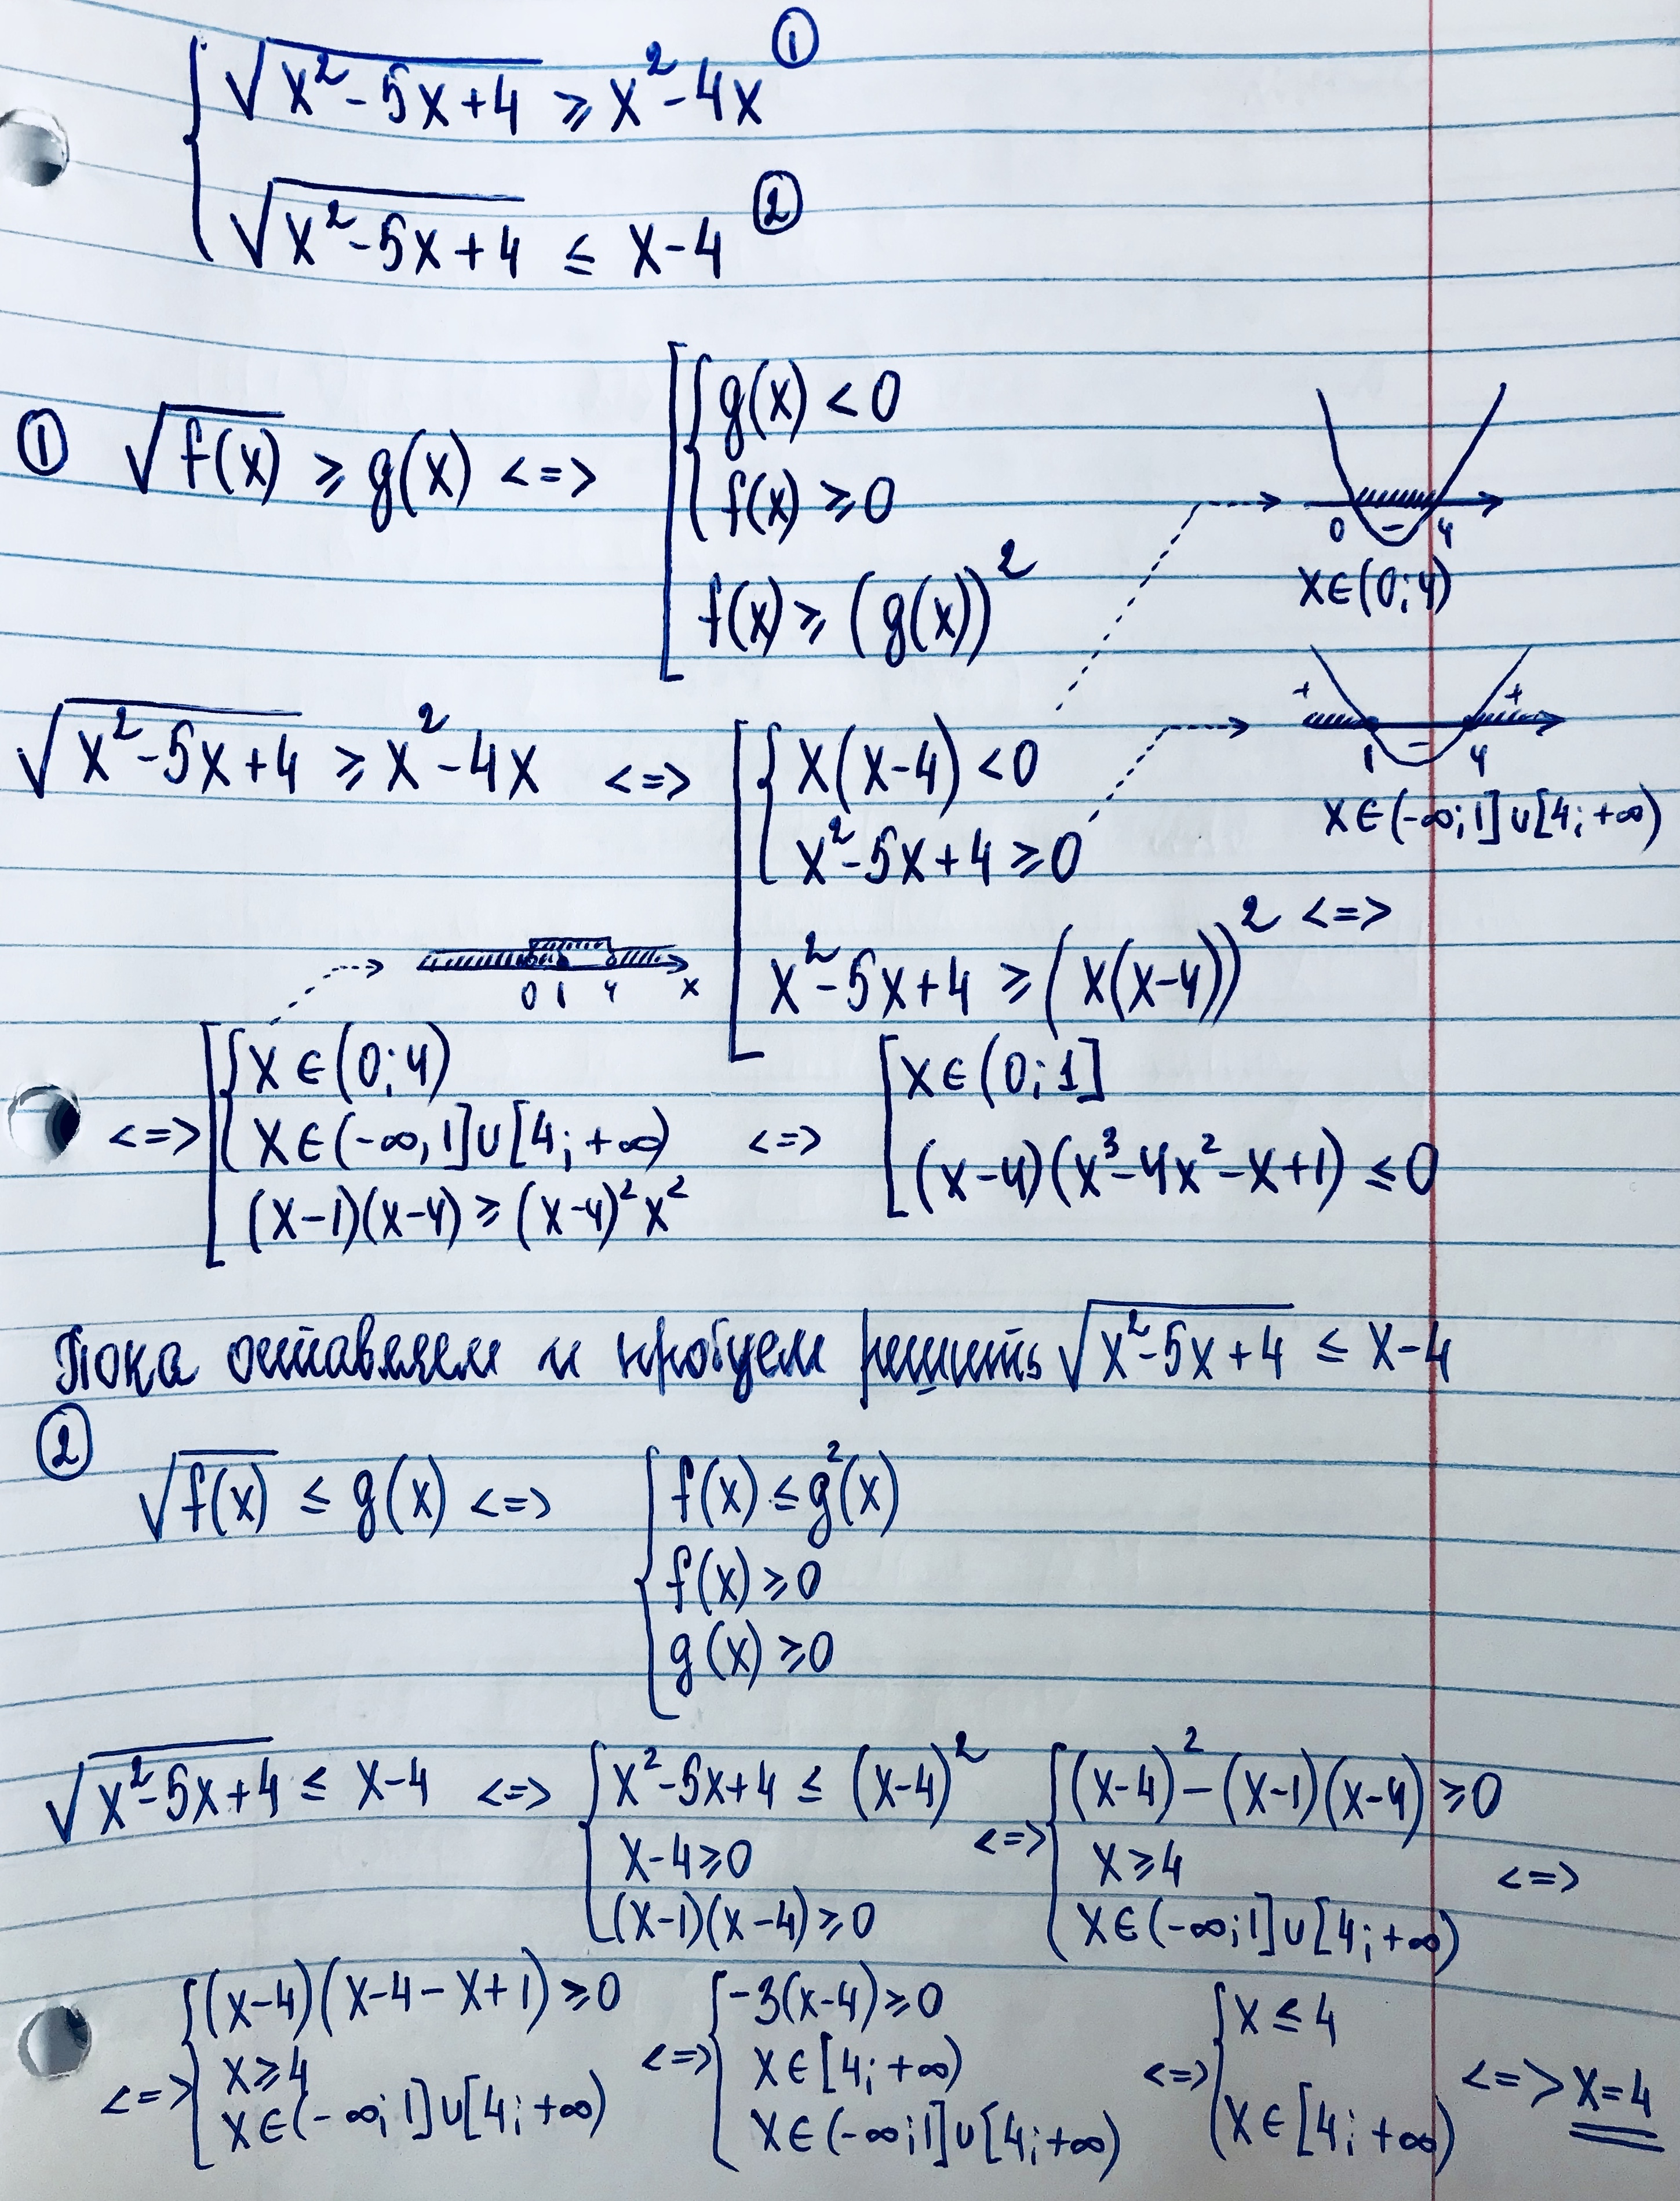 √(x²-5x+4) ≥ x²-4x ①
√(x²-5x+4) ≤ x-4 ②
① √f(x) ≥ g(x) <=> [ { g(x) < 0
f(x) ≥ 0
f(x) ≥ (g(x))²
0 - 4
x∈(0;4)
√(x²-5x+4) ≥ x²-4x <=> [ { x(x-4) < 0
x²-5x+4 ≥ 0
x²-5x+4 ≥ (x(x-4))² <=>
+ - +
1 4
x∈(-∞;1]∪[4;+∞)
0 1 4 x
<=> [ { x∈(0;4)
x∈(-∞,1]∪[4;+∞)
(x-1)(x-4) ≥ (x-4)²x²
<=> [ x∈(0;1]
(x-4)(x³-4x²-x+1) ≤ 0
Пока оставляем и пробуем решить √(x²-5x+4) ≤ x-4
② √f(x) ≤ g(x) <=> { f(x) ≤ g²(x)
f(x) ≥ 0
g(x) ≥ 0
√(x²-5x+4) ≤ x-4 <=> { x²-5x+4 ≤ (x-4)²
x-4 ≥ 0
(x-1)(x-4) ≥ 0
<=> { (x-4)²-(x-1)(x-4) ≥ 0
x ≥ 4
x∈(-∞;1]∪[4;+∞)
<=>
<=> { (x-4)(x-4-x+1) ≥ 0
x ≥ 4
x∈(-∞;1]∪[4;+∞)
<=> { -3(x-4) ≥ 0
x∈[4;+∞)
x∈(-∞;1]∪[4;+∞)
<=> { x ≤ 4
x∈[4;+∞)
<=> x=4